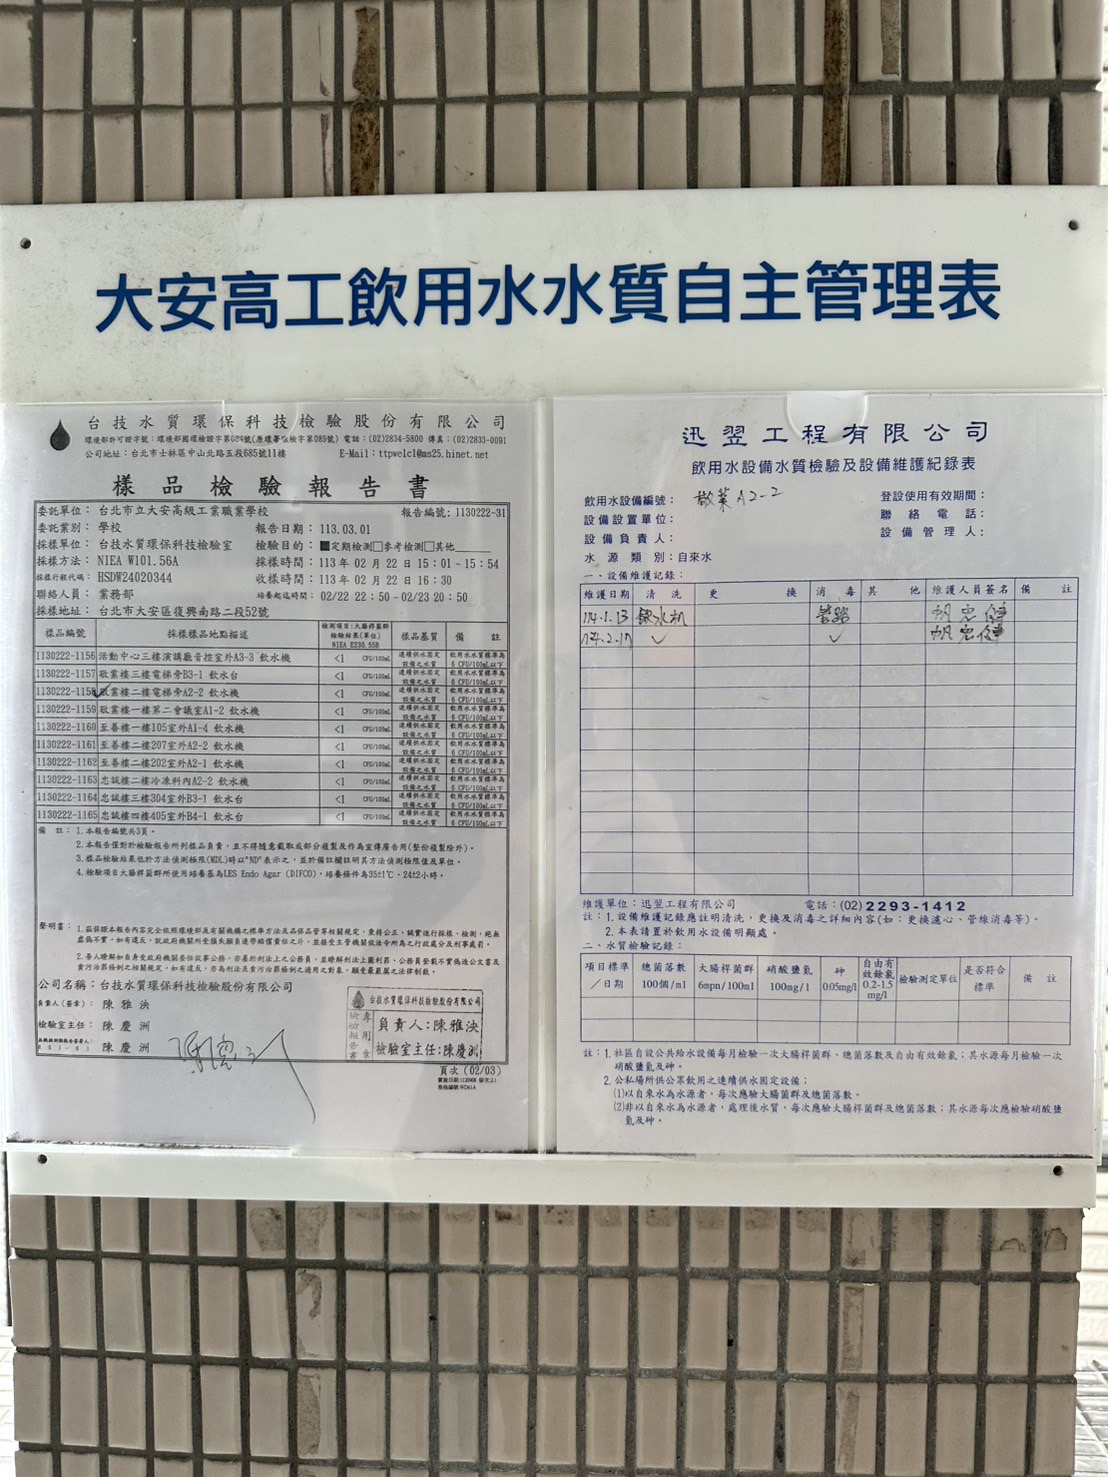 大安高工飲用水水質自主管理表
台技水質環保科技檢驗股份有限公司
電話:(02)2834-5800 傳真:(02)2833-0091
公司地址:台北市士林區中山北路五段685號11樓 E-Mail:ttpwelcl@ms25.hinet.net
樣品檢驗報告書
委託單位: 台北市立大安高級工業職業學校 報告編號: 1130222-31
委託業別: 學校 報告日期: 113.03.01
採樣單位: 台技水質環保科技檢驗室 檢驗目的: ■定期檢測□參考檢測□其他
採樣方法: NIEA W101.56A 採樣時間: 113 年 02 月 22 日 15:01~15:54
採樣行程代碼: HSDW24020344 收樣時間: 113 年 02 月 22 日 16:30
聯絡人員: 業務部 培養起迄時間: 02/22 22:50-02/23 20:50
採樣地址: 台北市大安區復興南路二段52號
樣品編號 採樣樣品地點描述 檢測項目:大腸桿菌群 檢驗結果(單位) NIEA E230.55B 樣品基質 備註
1130222-1156 活動中心三樓演講廳音控室外A3-3 飲水機 <1 CFU/100mL 連續供水固定設備之水質 飲用水水質標準為6 CFU/100mL以下
1130222-1157 敬業樓三樓電梯旁B3-1 飲水台 <1 CFU/100mL 連續供水固定設備之水質 飲用水水質標準為6 CFU/100mL以下
1130222-1158 敬業樓二樓電梯旁A2-2 飲水機 <1 CFU/100mL 連續供水固定設備之水質 飲用水水質標準為6 CFU/100mL以下
1130222-1159 敬業樓一樓第二會議室A1-2 飲水機 <1 CFU/100mL 連續供水固定設備之水質 飲用水水質標準為6 CFU/100mL以下
1130222-1160 至善樓一樓105室外A1-4 飲水機 <1 CFU/100mL 連續供水固定設備之水質 飲用水水質標準為6 CFU/100mL以下
1130222-1161 至善樓二樓207室外A2-2 飲水機 <1 CFU/100mL 連續供水固定設備之水質 飲用水水質標準為6 CFU/100mL以下
1130222-1162 至善樓二樓202室外A2-1 飲水機 <1 CFU/100mL 連續供水固定設備之水質 飲用水水質標準為6 CFU/100mL以下
1130222-1163 忠誠樓二樓冷凍科內A2-2 飲水機 <1 CFU/100mL 連續供水固定設備之水質 飲用水水質標準為6 CFU/100mL以下
1130222-1164 忠誠樓三樓304室外B3-1 飲水台 <1 CFU/100mL 連續供水固定設備之水質 飲用水水質標準為6 CFU/100mL以下
1130222-1165 忠誠樓四樓405室外B4-1 飲水台 <1 CFU/100mL 連續供水固定設備之水質 飲用水水質標準為6 CFU/100mL以下
備 註: 1.本報告編號共3頁。
2.本報告僅對於檢驗報告所列樣品負責,且不得隨意截取或部分複製及作為宣傳廣告用(整份複製除外)。
3.樣品檢驗結果低於方法偵測極限(MDL)時以"ND"表示之,並於備註欄註明其方法偵測極限值及單位。
4.檢驗項目大腸桿菌群所使用培養基為LES Endo Agar (DIFCO),培養條件為35±1℃、24±2小時。
聲明書: 1.茲保證本報告內容完全依照環境部及有關機構之標準方法及品保品管等相關規定,秉持公正、誠實進行採樣、檢測,絕無
虛偽不實,如有違反,就政府機關所受損失願負連帶賠償責任之外,並接受主管機關依法令所為之行政處分及刑事處罰。
2.吾人瞭解如自身受政府機關委任從事公務,亦屬於刑法上之公務員,並瞭解刑法上圖利罪、公務員登載不實偽造公文書及
貪污治罪條例之相關規定,如有違反,亦為刑法及貪污治罪條例之適用之對象,願受最嚴厲之法律制裁。
公司名稱:台技水質環保科技檢驗股份有限公司
負責人(簽章): 陳雅泱
檢驗室主任: 陳慶洲
陳慶洲
台技水質環保科技檢驗股份有限公司
檢驗報告書專用章
負責人:陳雅泱
檢驗室主任:陳慶洲
頁次 (02/03)
迅翌工程有限公司
飲用水設備水質檢驗及設備維護紀錄表
飲用水設備編號: 敬業 A2-2 登設使用有效期間:
設備設置單位: 聯絡電話:
設備負責人: 設備管理人:
水源類別:自來水
一、設備維護記錄:
維護日期 清洗 更換 消毒 其他 維護人員簽名 備註
114.1.13 飲水机 管路
114.2.17 ✓ ✓
維護單位:迅翌工程有限公司 電話:(02)2293-1412
註:1.設備維護記錄應註明清洗,更換及消毒之詳細內容(如:更換濾心、管線消毒等)。
2.本表請置於飲用水設備明顯處。
二、水質檢驗記錄:
項目標準/日期 總菌落數 100個/ml 大腸桿菌群 6mpn/100ml 硝酸鹽氮 100mg/l 砷 0.05mg/l 自由有效餘氯 0.2-1.5 mg/l 檢驗測定單位 是否符合標準 備註
註:1.社區自設公共給水設備每月檢驗一次大腸桿菌群、總菌落數及自由有效餘氯;其水源每月檢驗一次
硝酸鹽氮及砷。
2.公私場所供公眾飲用之連續供水固定設備:
(1)以自來水為水源者,每次應驗大腸菌群及總菌落數。
(2)非以自來水為水源者,處理後水質,每次應驗大腸桿菌群及總菌落數;其水源每次應檢驗硝酸鹽
氮及砷。